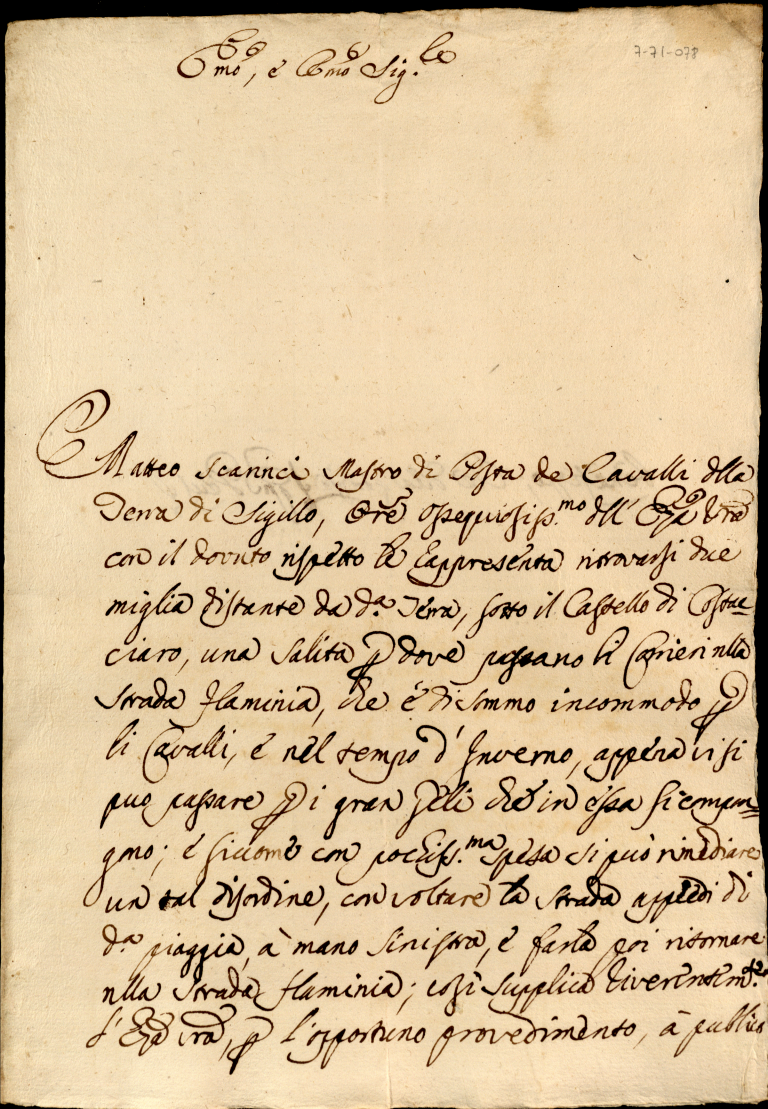 7-71-078
Emo, e Rmo Sig.re
Matteo Scarinci Mastro di Posta de Cavalli della
Terra di Sigillo, Ore ossequiosiss.mo dell' Eza Vra
con il dovuto rispetto le rappresenta ritrovarsi due
miglia distante da d.a Terra, sotto il Castello di Costac=
ciaro, una Salita p dove passano li Corrieri nlla
Strada Flaminia, che è di sommo incommodo p
li Cavalli, e nel tempo d' Inverno, appena vi si
puo passare p i gran geli che in essa si compon=
gono; e siccome con pochiss.ma spesa si può rimediare
un tal disordine, con voltare la strada appiedi di
d.a piaggia, à mano sinistra, e farla poi ritornare
nlla Strada Flaminia; così supplica riverentem.te
l' Eza Vra, p l'opportuno provedimento, à publico